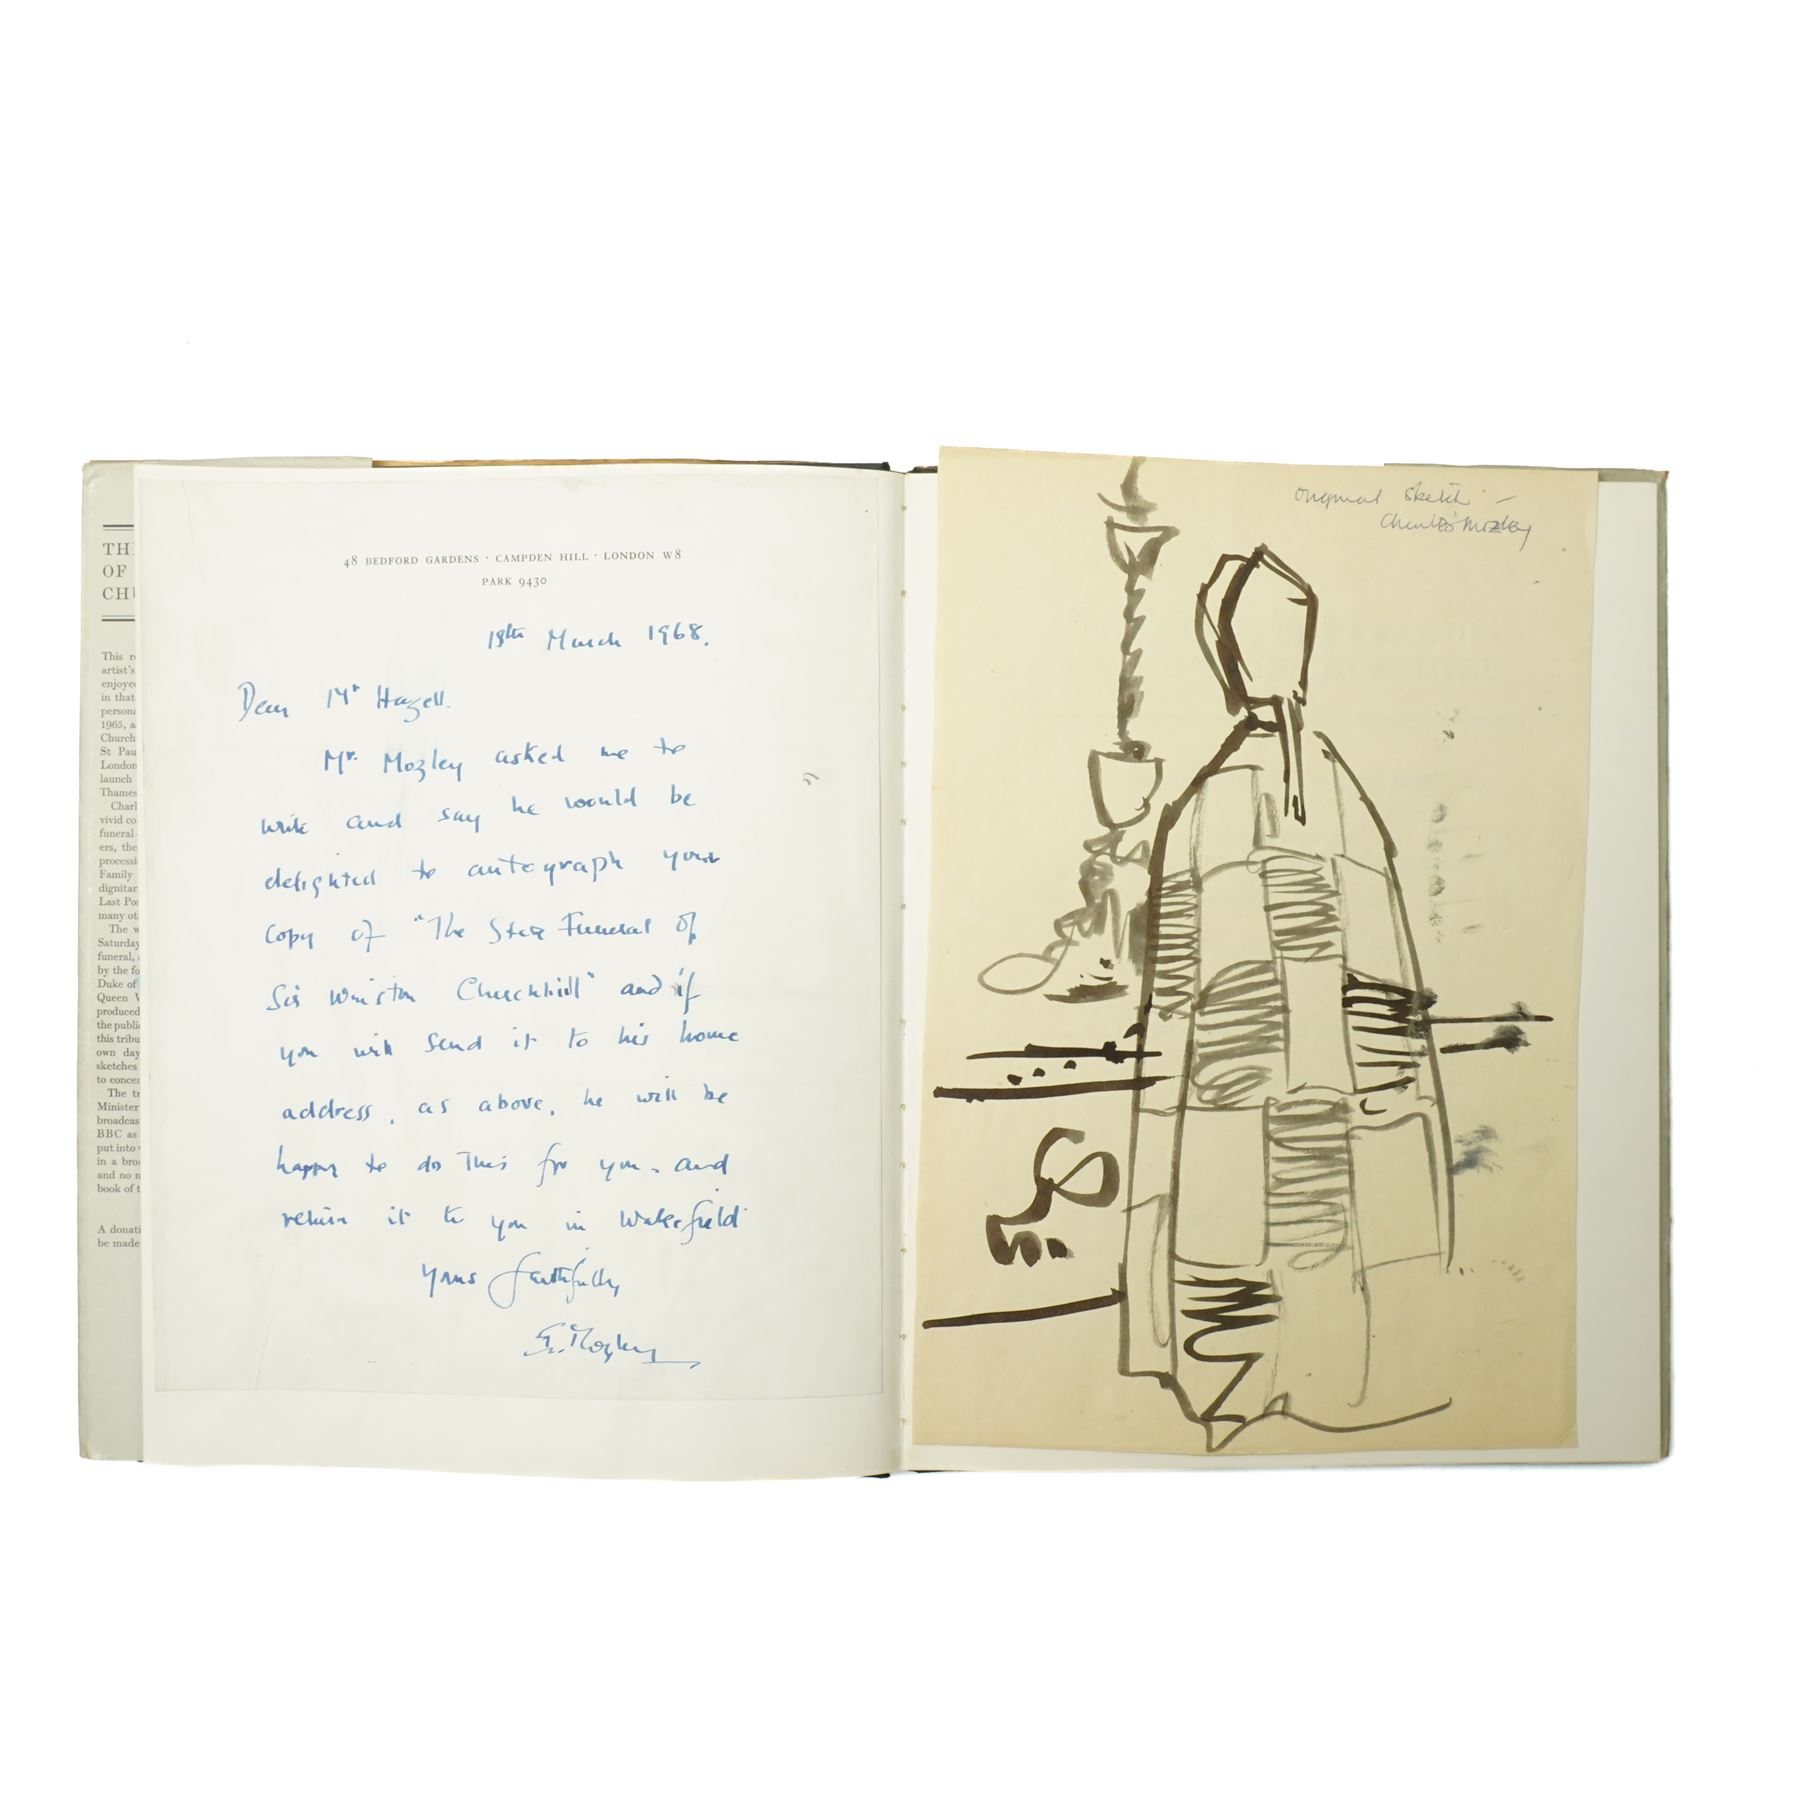 THE
OF
CHU
This r
artist's
enjoye
in that
persona
1965, a
Church
St Pau
London
launch
Thames
Charl
vivid co
funeral
ers, the
processi
Family
dignitar
Last Pos
many ot
The w
Saturday
funeral,
by the fo
Duke of
Queen V
produced
the public
this tribu
own day
sketches
to concea
The tr
Minister
broadcas
BBC as
put into
in a broa
and no m
book of t
A donati
be made
48 BEDFORD GARDENS · CAMPDEN HILL · LONDON W8
PARK 9430
18th March 1968.
Dear Mr Hazell.
Mr. Mozley asked me to
write and say he would be
delighted to autograph your
copy of "The State Funeral of
Sir Winston Churchill" and if
you will send it to his home
address, as above, he will be
happy to do this for you - and
return it to you in Wakefield
Yours faithfully
E. Mozley
original sketch –
Charles Mozley